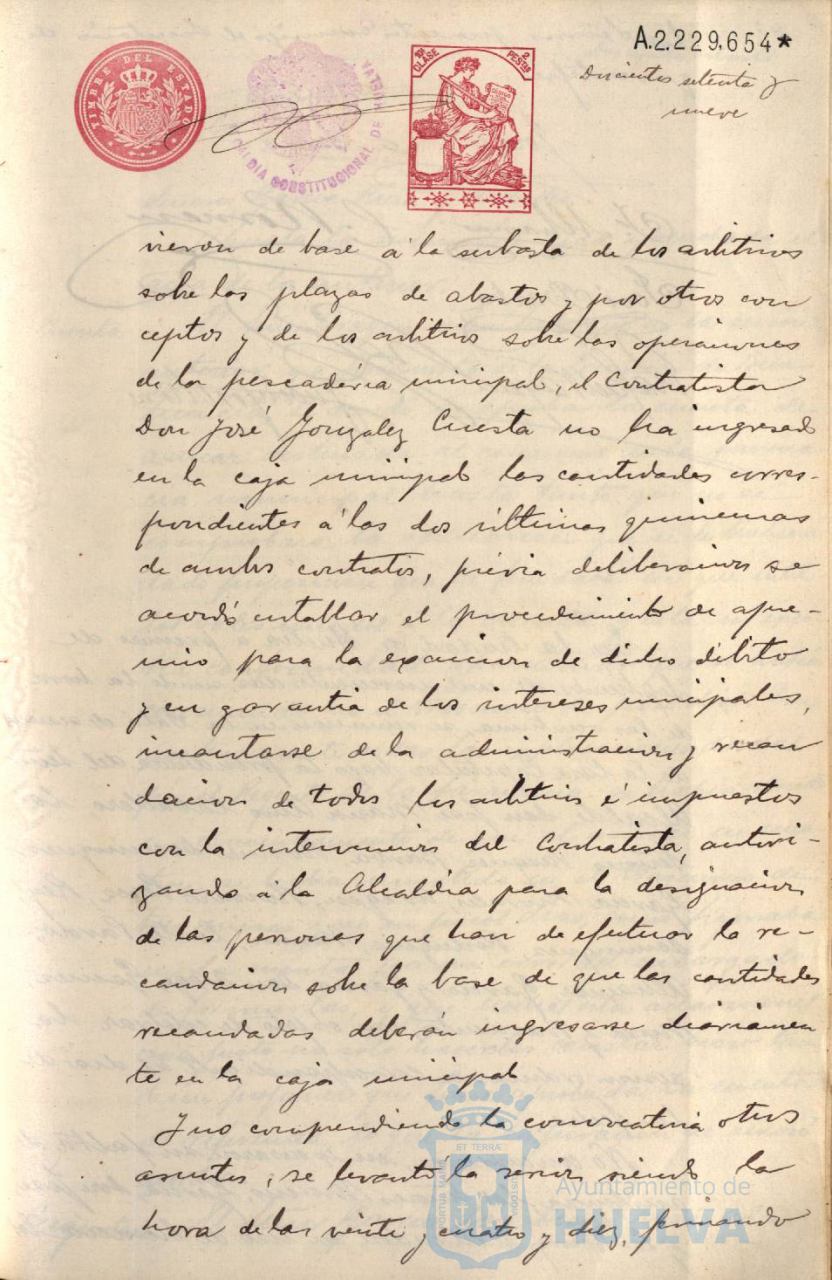 A.2.229.654*
TIMBRE DEL ESTADO
ALCALDIA CONSTITUCIONAL DE HUELVA
10ª CLASE
2 PESETAS
Doscientos setenta y
nueve
vieron de base á la subasta de los arbitrios
sobre las plazas de abastos y por otros con
ceptos y de los arbitrios sobre las operaciones
de la pescadería municipal, el Contratista
Don José Gonzalez Cuesta no ha ingresado
en la caja municipal las cantidades corres-
pondientes á las dos últimas quincenas
de ambos contratos, prévia deliberacion se
acordó entablar el procedimiento de apre-
mio para la exaccion de dicho débito
y en garantia de los intereses municipales,
incautarse de la administracion y recau
dacion de todos los arbitrios é impuestos
con la intervencion del Contratista, autori-
zando á la Alcaldia para la designacion
de las personas que han de efectuar la re-
caudacion sobre la base de que las cantidades
recaudadas deberán ingresarse diariamen
te en la caja municipal
Y no comprendiendo la convocatoria otros
asuntos, se levantó la sesion siendo la
hora de las veinte y cuatro y diez, firmando
Ayuntamiento de
HUELVA